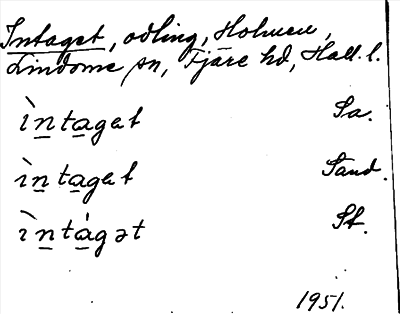 Intaget, odling, Holmen,
Lindome sn, Fjäre hd, Hall. l.
ìntaget Sa.
ìntaget Sand.
ìntágət St.
1951.